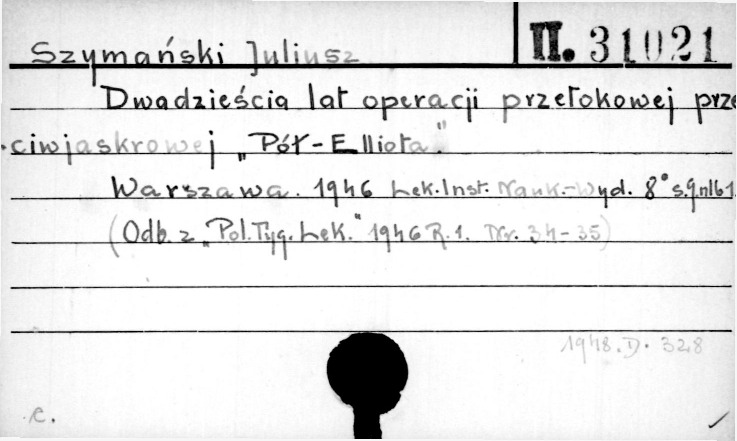 II. 31021
Szymański Juliusz
Dwadzieścia lat operacji przetokowej prze
ciwjaskrowej „Pół-Elliota"
Warszawa. 1946 Lek. Inst. Nauk.-Wyd. 8° s. 9. nlb 1.
(Odb. z „Pol. Tyg. Lek." 1946 R. 1. Nr. 34-35)
1948. D. 328
c.